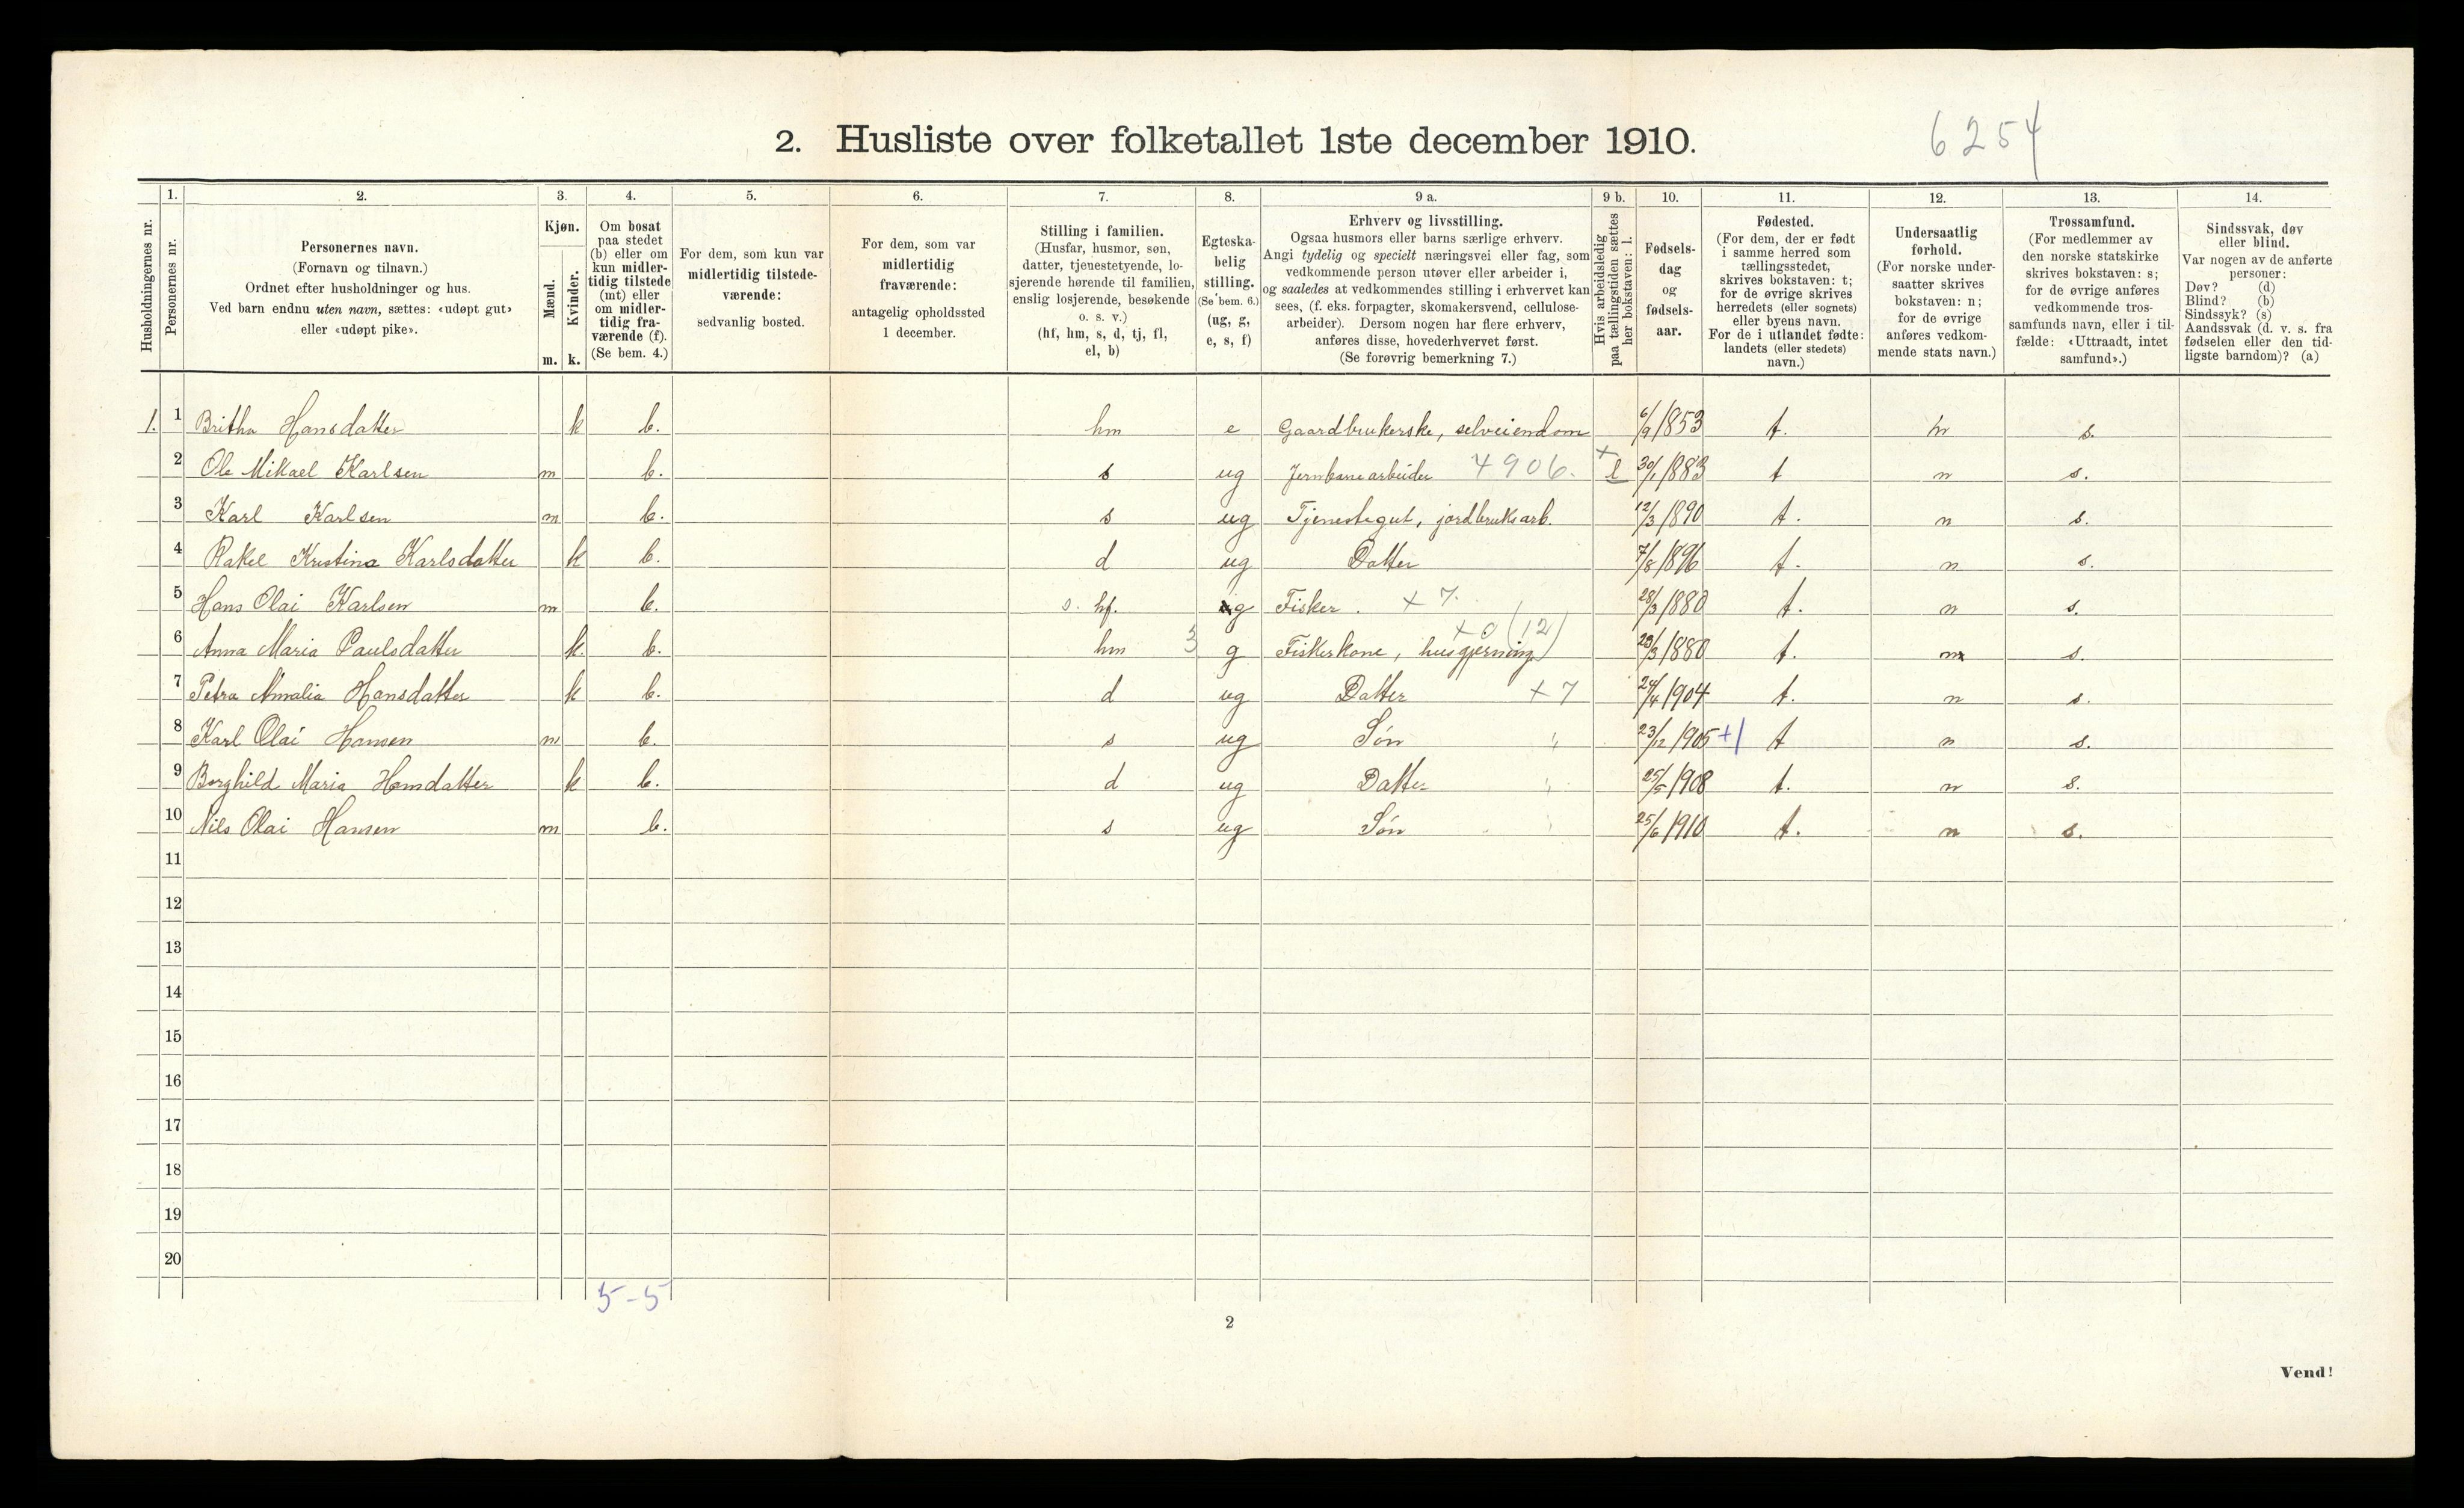 6254
2. Husliste over folketallet 1ste december 1910.
Husholdningernes nr.
1.
Personernes nr.
2.
Personernes navn.
(Fornavn og tilnavn.)
Ordnet efter husholdninger og hus.
Ved barn endnu uten navn, sættes: «udøpt gut»
eller «udøpt pike».
3.
Kjøn.
Mænd.
m.
Kvinder.
k.
4.
Om bosat
paa stedet
(b) eller om
kun midler-
tidig tilstede
(mt) eller
om midler-
tidig fra-
værende (f).
(Se bem. 4.)
5.
For dem, som kun var
midlertidig tilstede-
værende:
sedvanlig bosted.
6.
For dem, som var
midlertidig
fraværende:
antagelig opholdssted
1 december.
7.
Stilling i familien.
(Husfar, husmor, søn,
datter, tjenestetyende, lo-
sjerende hørende til familien,
enslig losjerende, besøkende
o. s. v.)
(hf, hm, s, d, tj, fl,
el, b)
8.
Egteska-
belig
stilling.
(Se bem. 6.)
(ug, g,
e, s, f)
9 a.
Erhverv og livsstilling.
Ogsaa husmors eller barns særlige erhverv.
Angi tydelig og specielt næringsvei eller fag, som
vedkommende person utøver eller arbeider i,
og saaledes at vedkommendes stilling i erhvervet kan
sees, (f. eks. forpagter, skomakersvend, cellulose-
arbeider). Dersom nogen har flere erhverv,
anføres disse, hovederhvervet først.
(Se forøvrig bemerkning 7.)
9 b.
Hvis arbeidsledig
paa tællingstiden sættes
her bokstaven: l.
10.
Fødsels-
dag
og
fødsels-
aar.
11.
Fødested.
(For dem, der er født
i samme herred som
tællingsstedet,
skrives bokstaven: t;
for de øvrige skrives
herredets (eller sognets)
eller byens navn.
For de i utlandet fødte:
landets (eller stedets)
navn.)
12.
Undersaatlig
forhold.
(For norske under-
saatter skrives
bokstaven: n;
for de øvrige
anføres vedkom-
mende stats navn.)
13.
Trossamfund.
(For medlemmer av
den norske statskirke
skrives bokstaven: s;
for de øvrige anføres
vedkommende tros-
samfunds navn, eller i til-
fælde: «Uttraadt, intet
samfund».)
14.
Sindssvak, døv
eller blind.
Var nogen av de anførte
personer:
Døv? (d)
Blind? (b)
Sindssyk? (s)
Aandssvak (d. v. s. fra
fødselen eller den tid-
ligste barndom)? (a)
1. 1 Britha Hansdatter k b. hm e Gaardbrukerske, selveiendom 6/9 1853 t. n s.
2 Ole Mikael Karlsen m b. s ug Jernbanearbeider 4906. + l 30/1 1883 t n s.
3 Karl Karlsen m b. s ug Tjenestegut, jordbruksarb. 12/3 1890 t. n s.
4 Rakel Kristina Karlsdatter k b. d ug Datter 7/8 1896 t. n s.
5 Hans Olai Karlsen m b. s. hf. g Fisker. + 7. 28/3 1880 t. n s.
6 Anna Maria Paulsdatter k. b. hm 3 g Fiskerkone, husgjerning +0 (12) 23/3 1880 t. n s.
7 Petra Amalia Hansdatter k b. d ug Datter + 7 24/4 1904 t. n s.
8 Karl Olai Hansen m b. s ug Søn 23/12 1905 +1 t n s.
9 Borghild Maria Hansdatter k b. d ug Datter 25/5 1908 t. n s.
10 Nils Olai Hansen m b. s ug Søn 25/6 1910 t. n s.
11
12
13
14
15
16
17
18
19
20
5-5
2
Vend!